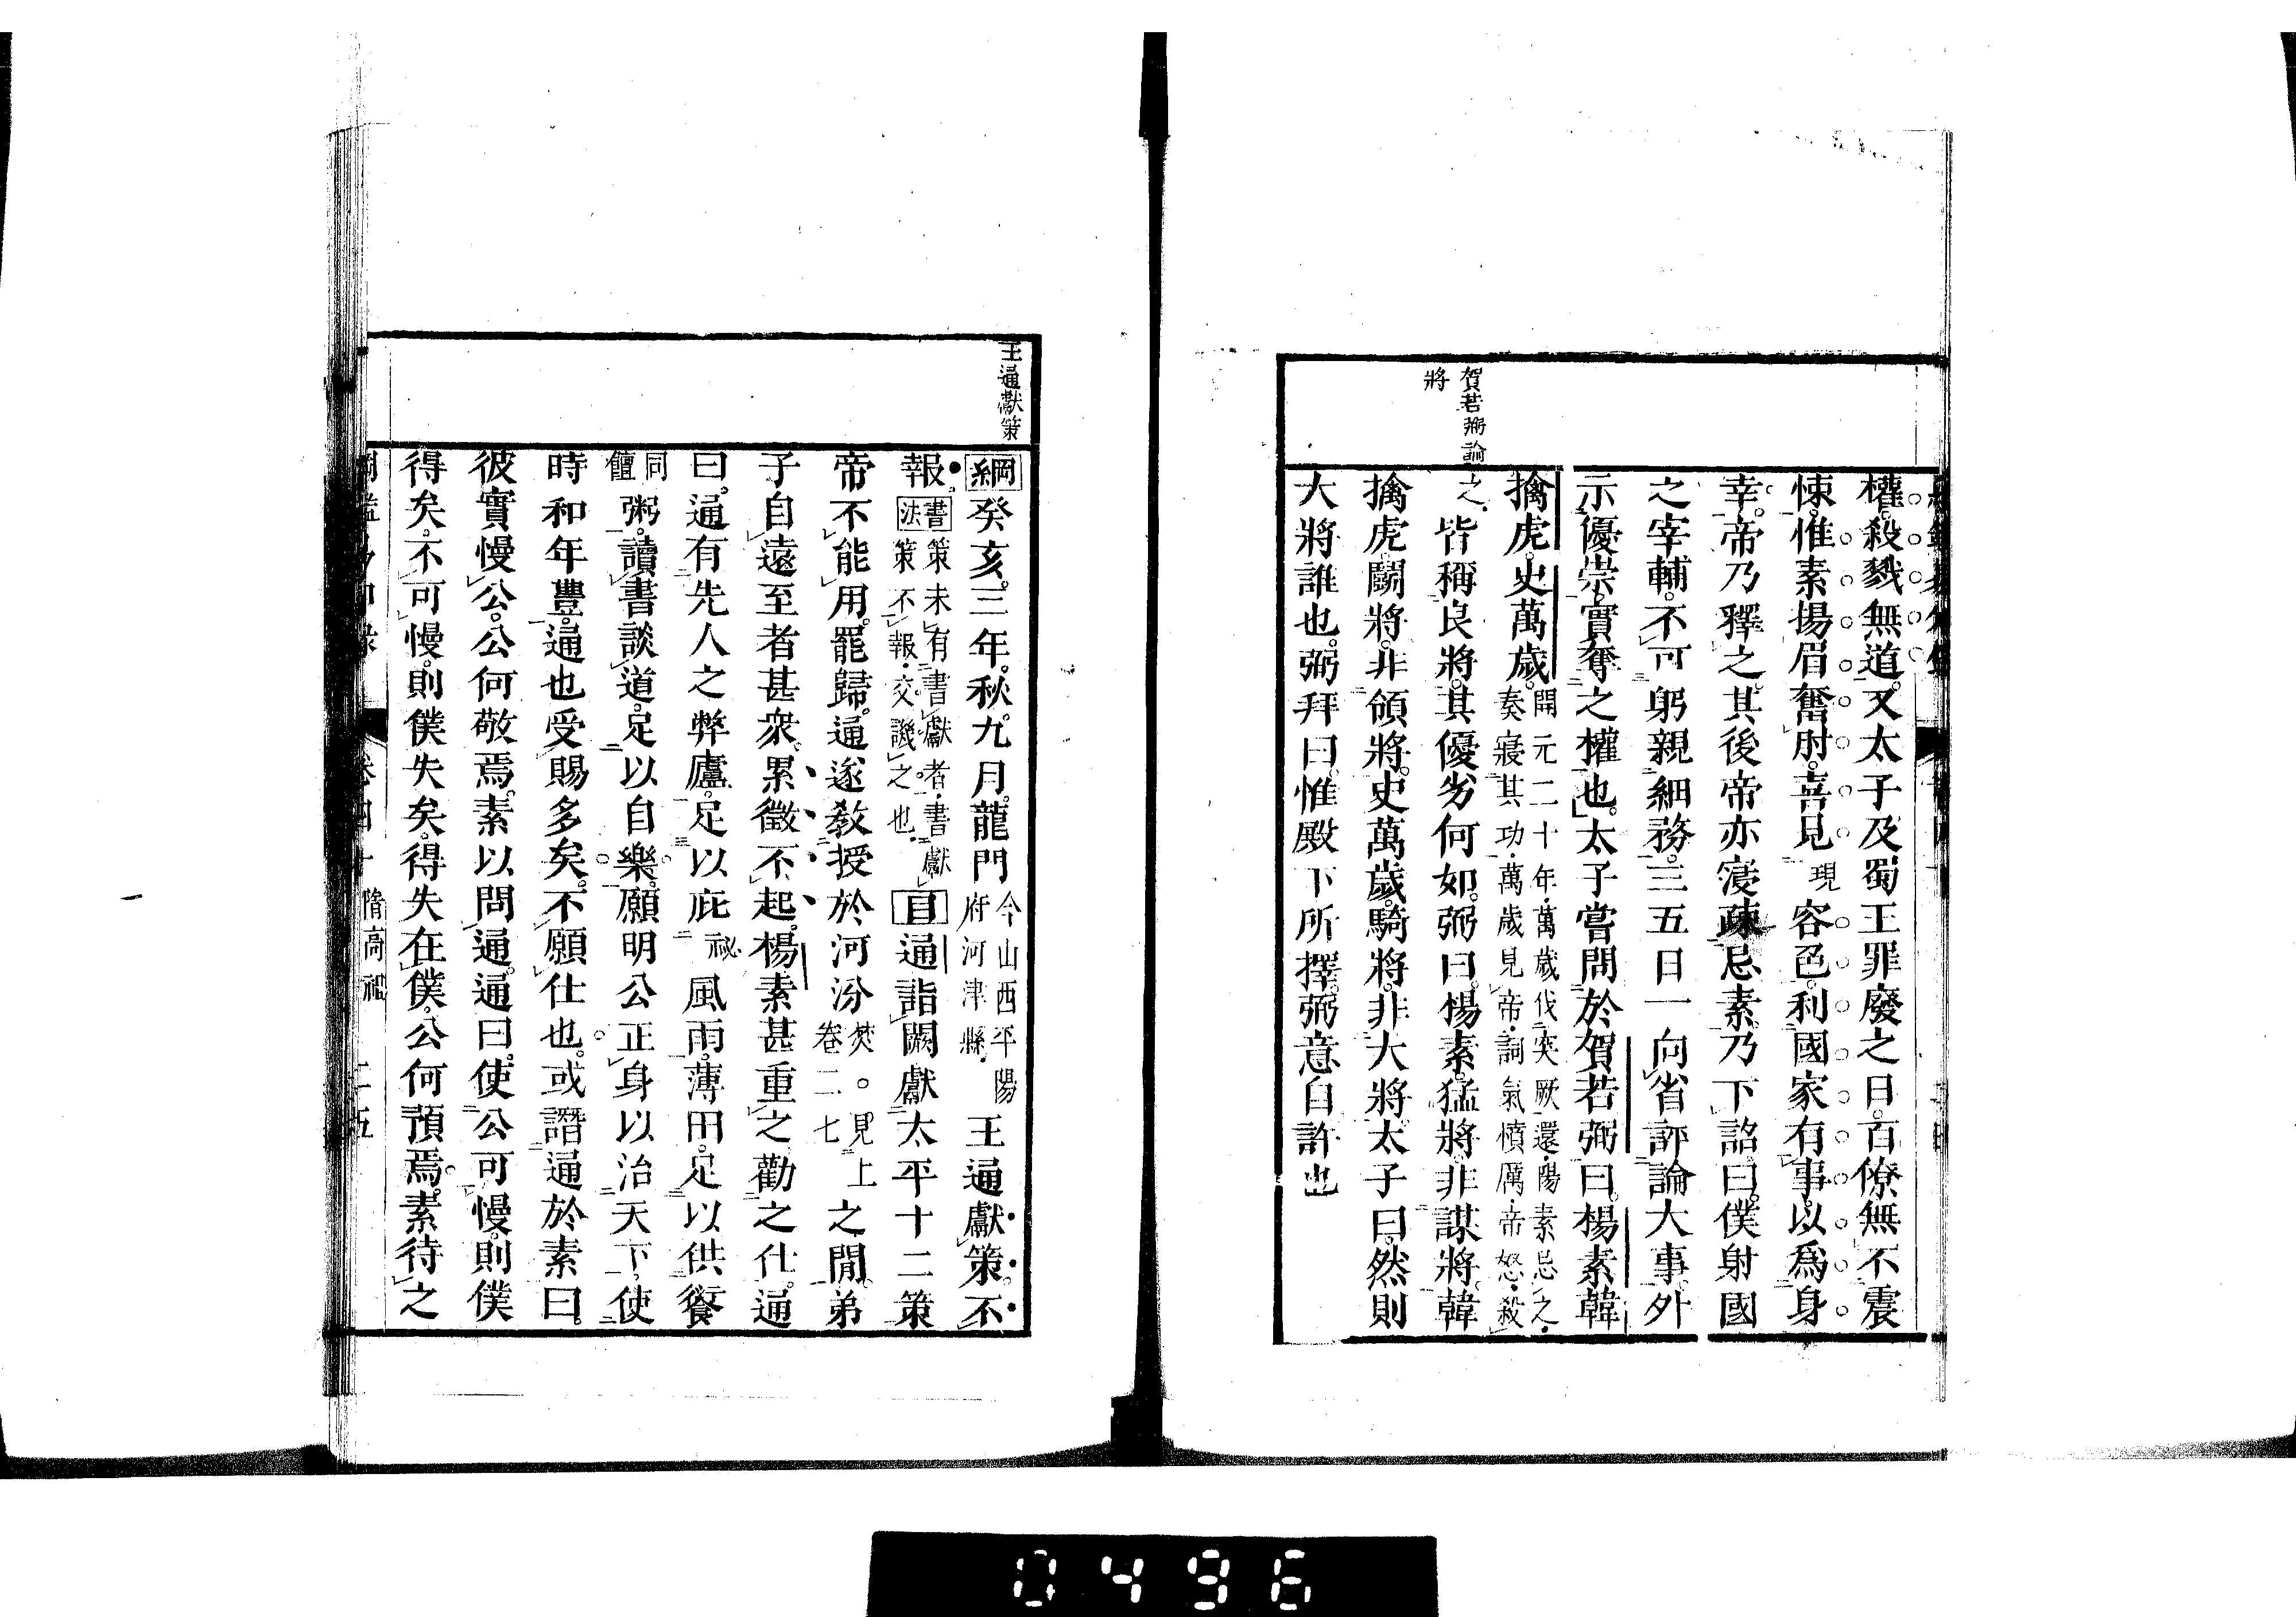 賀若弼論
將
權。殺戮無道。又太子及蜀王罪廢之日。百僚無不震
悚。惟素揚眉奮肘。喜見現容色。利國家有事。以爲身
幸。帝乃釋之。其後帝亦寖疎忌素。乃下詔曰。僕射國
之宰輔。不可躬親細務。三五日一向省評論大事。外
示優崇。實奪之權也。太子嘗問於賀若弼曰。楊素韓
擒虎。史萬歲。開元二十年。萬歲伐突厥還。陽素忌之。奏寢其功。萬歲見帝。詞氣憤厲。帝怒。殺
之。皆稱良將。其優劣何如。弼曰。楊素猛將。非謀將。韓
擒虎鬭將。非領將。史萬歲騎將。非大將。太子曰。然則
大將誰也。弼拜曰。惟殿下所擇。弼意自許也
王通獻策
綱癸亥。三年。秋。九月。龍門今山西平陽府河津縣。王通獻策。不
報。書法策未有書獻者。書獻策不報。交譏之也。目通詣闕獻太平十二策
帝不能用。罷歸。通遂敎授於河汾焚。見上卷二七之閒。弟
子自遠至者甚衆。累徵不起。楊素甚重之勸之仕。通
曰。通有先人之弊廬。足以庇祕風雨。薄田。足以供饘
同饘粥。讀書談道。足以自樂。願明公正身以治天下。使
時和年豐。通也受賜多矣。不願仕也。或譖通於素曰。
彼實慢公。公何敬焉。素以問通。通曰。使公可慢。則僕
得矣。不可慢。則僕失矣。得失在僕。公何預焉。素待之
卷四十 隋高祖 二五
0496